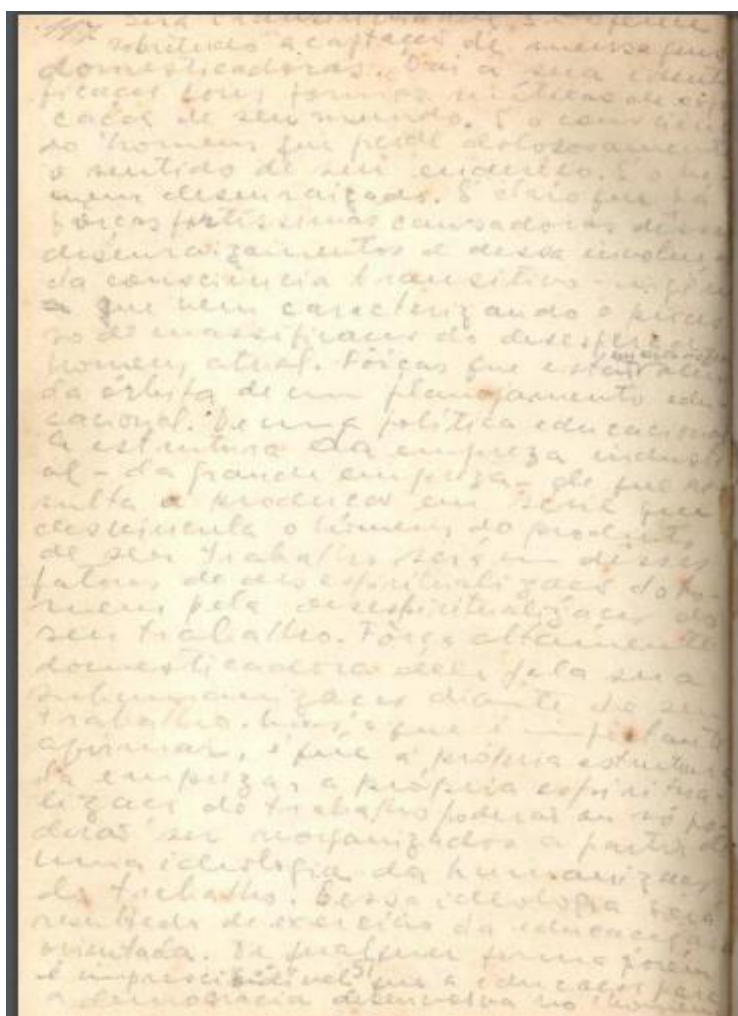 sobretudo a captação de mensagens
domesticadoras. Daí a sua identi
ficação com formas míticas de expli
cação de seu mundo. É o
do homem que perde dolorosamente
o sentido de seu endereço. É o ho
mem desenraizado. É claro que há
fôrças fortíssimas causadoras desse
desenraizamento e dessa
da consciência transitivo-ingênu
a que vem caracterizando o proces
so de massificação do
homem atual. Fôrças que
da órbita de um planejamento edu
cacional. De uma política educacional
A estrutura da empreza industri
al - da grande empreza - de que re
sulta a producão em série que
desvincula o homem do produto
de seu trabalho será um desses
fatores de desespiritualização do ho
mem pela desespiritualização do
seu trabalho. Fôrça altamente
domesticadora dele pela sua
subhumanização diante do seu
trabalho. Mas o que é importante
afirmar, é que a própria estrutura
da empreza, a própria espiritua
lização do trabalho poderão ou só po
derão ser reorganizados a partir de
uma ideologia da humanização
do trabalho. E essa ideologia será
resultado de exercício da educação
orientada. De qualquer forma porém
é imprescindível que a educação para
a democracia desenvolva no homem